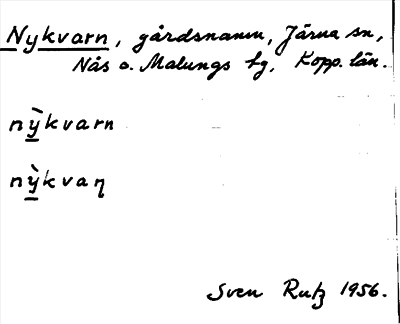 Nykvarn, gårdsnamn, Järna sn,
Nås o. Malungs tg, Kopp. län.
nỳkvarn
nỳkvaꞃ
Sven Rutz 1956.